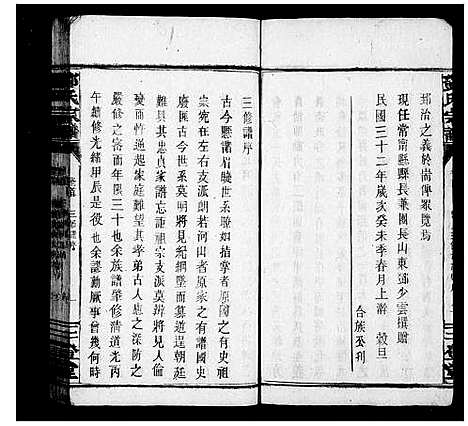 邦治之義於尚傳衆覽焉
現任常甯縣縣長兼團長山東鄧少雲撰贈
民國三十二年歲次癸未季春月上澣 穀旦
合族丕刋
三修譜序
古今懸諸眉睫世系瞭如指掌者原國之有史祖
宗宛在左右支派朗若河山者原家之有譜國史
廢匪古今世系莫明將見紀綱墜而篡逆呈朝廷
難見其忠貞家譜忘詎祖宗支派莫辨將見人倫
斁而忤逆起家庭難望其孝弟古人患之深防之
嚴修之密而年限三十也余族譜肇修清道光丙
午續修光緒甲辰是役也余認勷厥事曾幾何時
三登堂